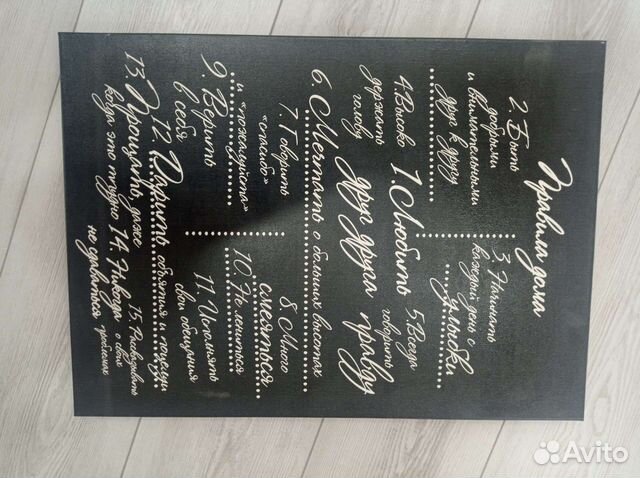 Правила дома
2. Быть
добрыми
и внимательными
друг к другу
3. Начинать
каждый день с
улыбки
1 Любить
друг друга
4. Высоко
держать
голову
5. Всегда
говорить
правду
6. Мечтать о больших высотах
7. Говорить
"спасибо"
и "пожалуйста"
8. Много
смеяться
9. Верить
в себя
10 Не лениться
11. Исполнять
свои обещания
12 Дарить объятия и поцелуи
13. Прощать, даже
когда это трудно
14. Никогда
не сдаваться
15. Рассказывать
о своих
проблемах
Avito